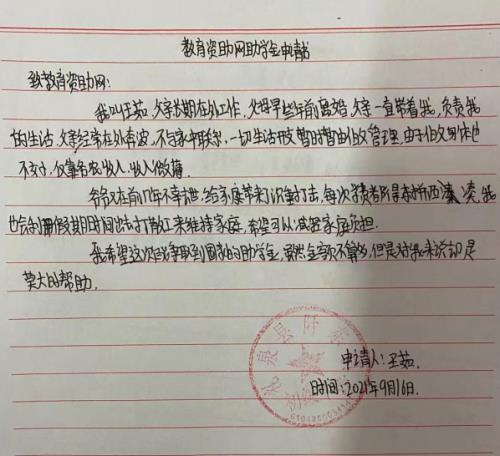 教育资助网助学金申请书
致教育资助网:
我叫王茹,父亲长期在外工作,父母早些年前离婚,父亲一直带着我,负责我
的生活,父亲经常在外奔波,不与家中联系,一切生活开支暂时暂由伯父管理,由于伯父身体也
不好,仅靠务农收入,收入微薄。
爷爷又在前几年不幸去世,给家庭带来沉重打击,每次学费都是东拼西凑,我
也会利用假期时间出去打散工来维持家庭,希望可以减轻家庭负担。
我希望这次能争取到国家的助学金,虽然金额不算多,但是对我来说却是
莫大的帮助。
礼泉县阡东
初级
申请人:王茹.
时间:2021年9月16日.